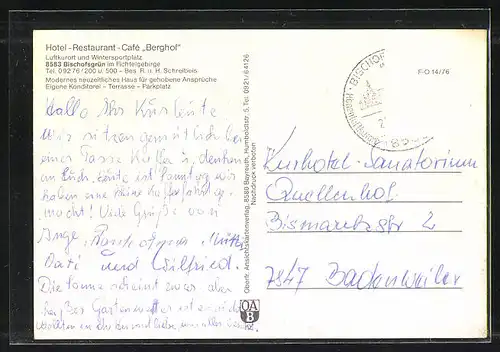 Hotel - Restaurant - Café „Berghof"
Luftkurort und Wintersportplatz
8583 Bischofsgrün im Fichtelgebirge
Tel. 092 76 / 200 u. 500 – Bes. R. u. H. Schreibeis
Modernes neuzeitliches Haus für gehobene Ansprüche
Eigene Konditorei – Terrasse – Parkplatz
Hallo Ihr Kursleute
Wir sitzen gemütlich bei
einer Tasse Kaffee u. denken
an Euch. Heute ist Samstag wir
haben eine kleine Kaffeefahrt ge-
macht! Viele Grüße von
Inge, Mutti
Vati und Wilfried.
Die Sonne scheint zwar aber
Gartenwetter ist
Oberfr. Ansichtskartenverlag, 8580 Bayreuth, Humboldtstr. 5, Tel. 0921/64126
Nachdruck verboten
OA
B
F-O 14/76
BISCHOF
Kurhotel-Sanatorium
Quellenhof
Bismarckstr 2
7847 Badenweiler